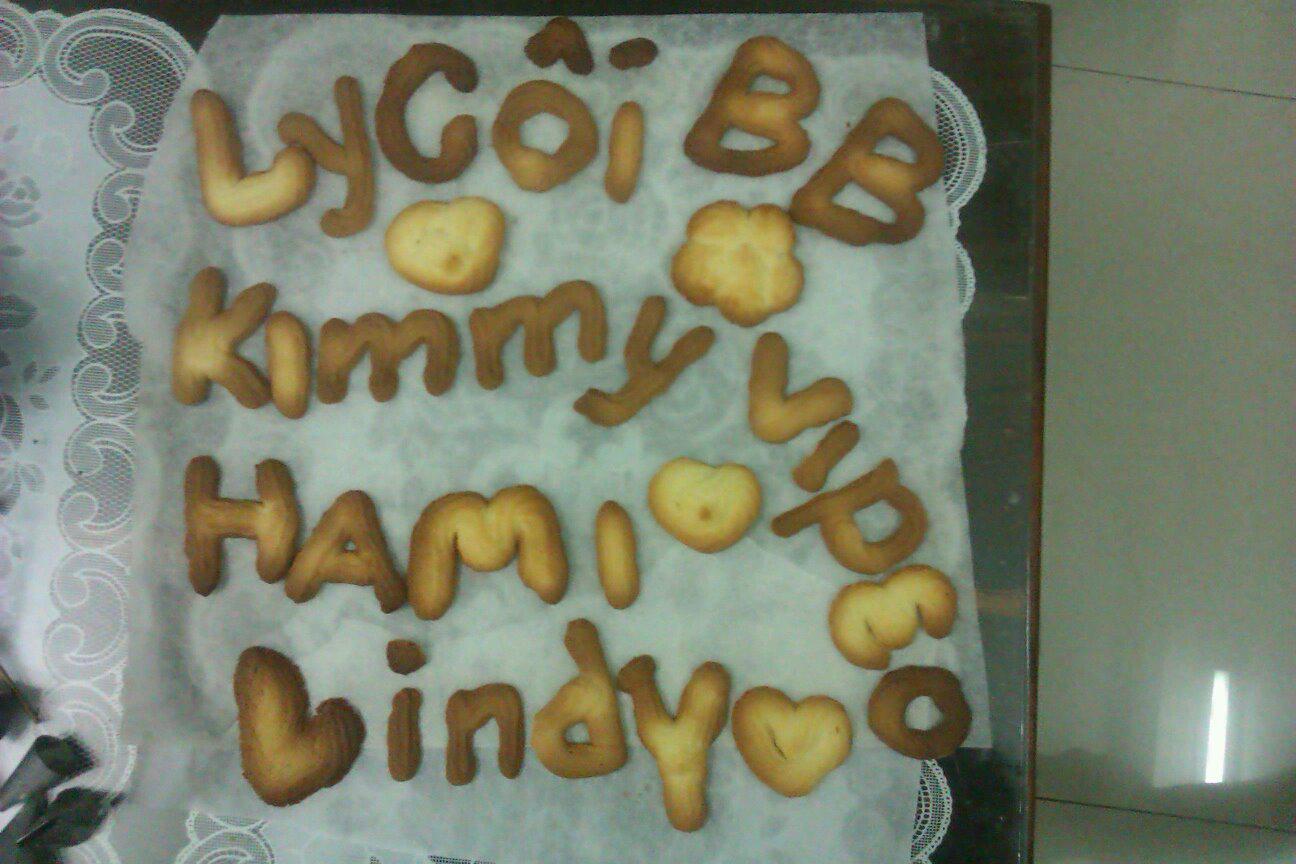 Ly Côi BB
Kimmy
HAMI
Lindy
vipmo